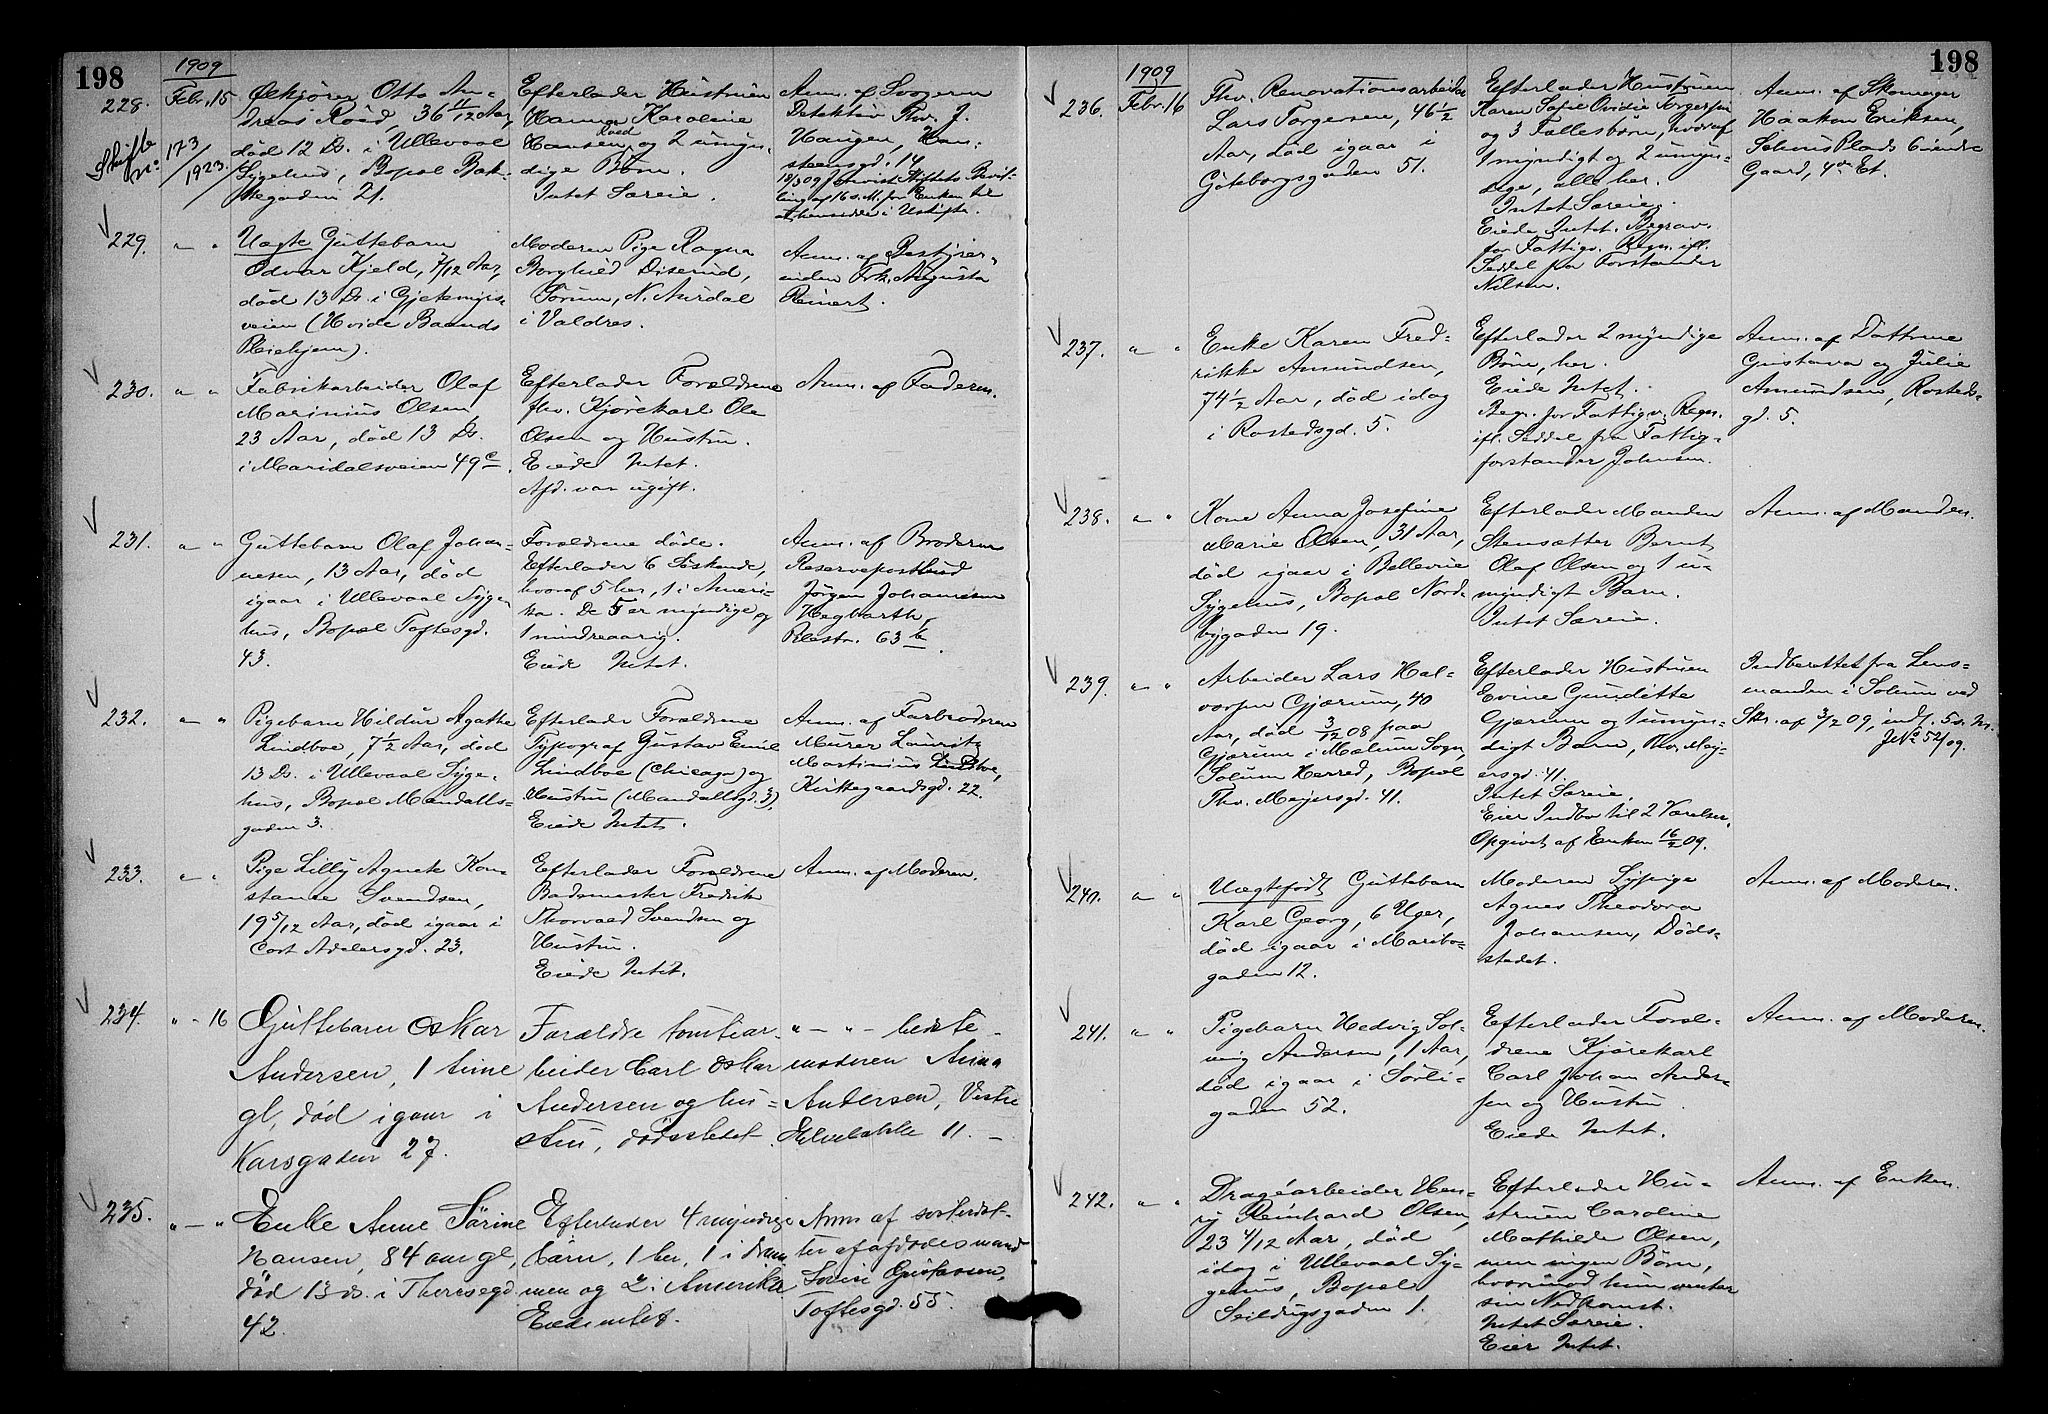 198
1909
228. Febr. 15
Skifte no. 173/1923.
Ølkjører Otto An-
dreas Roed, 36 11/12 Aar,
død 12 Ds. i Ullevaal
Sygehus, Bopæl Bak-
kegaden 21.
Efterlader Hustruen
Hanna Karoline
Hansen Roed og 2 umyn-
dige Børn.
Intet Særeie.
Anm. af Svogeren
Detektiv Thv. J.
Haugen, Han-
steensgd. 14
229. " "
Uægte Guttebarn
Odvar Kjeld, 7/12 Aar,
død 13 Ds. i Gjetemyrs-
veien (Hvide Baands
Pleiehjem).
Moderen Pige Ragna
Borghild Diserud,
Sørum, N. Aurdal
i Valdres.
Anm. af Bestyrer-
inden Frk. Augusta
Reinert.
230. " "
Fabrikarbeider Olaf
Marinius Olsen
23 Aar, død 13 Ds.
i Maridalsveien 49 c.
Efterlader Forældrene
fhv. Kjørekarl Ole
Olsen og Hustru.
Eiede Intet.
Afd. var ugift.
Anm. af Faderen.
231. " "
Guttebarn Olaf Johan-
nesen, 13 Aar, død
igaar i Ullevaal Syge-
hus, Bopæl Toftesgd.
43.
Forældrene døde.
Efterlader 6 Søskende,
hvoraf 5 her, 1 i Ameri-
ka. De 5 er myndige og
1 mindreaarig.
Eiede Intet.
Anm. af Broderen
Reservepostbud
Jørgen Johannesen
Hegharth,
Pilestr. 63 b.
232. " "
Pigebarn Hildur Agathe
Lindboe, 7 1/2 Aar, død
13 Ds. i Ullevaal Syge-
hus, Bopæl Mandalls-
gaden 3.
Efterlader Forældrene
Typograf Gustav Emil
Lindboe (Chicago) og
Hustru (Mandallsgd. 3).
Eiede Intet.
Anm. af Farbroderen
Murer Lauritz
Martinius Lindboe,
Kirkegaardsgd. 22.
233. " "
Pige Lilly Agnete Kon-
stanse Svendsen,
19 5/12 Aar, død igaar i
Cort Adelersgd. 23.
Efterlader Forældrene
Bademester Fredrik
Thorvald Svendsen og
Hustru.
Eiede Intet.
Anm. af Moderen.
234. " - 16
Guttebarn Oskar
Andersen, 1 time
gl, død igaar i
Karsgaden 27.
Forældre tomtear-
beider Carl Oskar
Andersen og hu-
stru, dødsstedet
" - " - bedste-
moderen Anna
Andersen, Vestre
Elvebakke 11. -
235. " - "
Enke Anne Sørine
Hansen, 84 aar gl,
død 13 ds. i Theresegd
42.
Efterlader 4 myndige
børn, 1 her, 1 i Dram
men og 2 i Amerika
Eiede intet.
Anm af søsterdat-
ter af afdødes mand
Lovise Gustavsen,
Toftesgd. 55.
198
1909
236. Febr. 16
Fhv. Renovationsarbeider
Lars Torgersen, 46 1/2
Aar, død igaar i
Göteborgsgaden 51.
Efterlader Hustruen
Karen Sofie Ovidie Torgersen
og 3 Fællesbørn, hvoraf
1 myndigt og 2 umyn-
dige, alle her.
Intet Særeie.
Eiede Intet. Begrav.
for Fattigv. Regn. ifl.
Seddel fra Forstander
Nilsen.
Anm. af Skomager
Haakon Eriksen,
Schous Plads 6 indre
Gaard, 4de Et.
237. " "
Enke Karen Fred-
rikke Amundsen,
74 1/2 Aar, død idag
i Rostedsgd. 5.
Efterlader 2 myndige
Børn, her.
Eiede Intet.
Begr. for Fattigv. Regn.
ifl. Seddel fra Fattig-
forstander Johnsen.
Anm. af Døttrene
Gustava og Julie
Amundsen, Rosteds-
gd. 5.
238. " "
Kone Anna Josefine
Marie Olsen, 31 Aar,
død igaar i Bellevue
Sygehus, Bopæl Nord-
bygaden 19.
Efterlader Manden
Stensætter Bernt
Olaf Olsen og 1 u-
myndigt Barn.
Intet Særeie.
Anm. af Manden.
239. " "
Arbeider Lars Hal-
vorsen Gjærum, 40
Aar, død 3/12 08 paa
Gjærum i Mælum Sogn,
Solum Herred, Bopæl
Thv. Meyersgd. 41.
Efterlader Hustruen
Evine Gunditte
Gjærum og 1 umyn-
digt Barn, Thv. Mey-
ersgd. 41.
Intet Særeie.
Eier Indbo til 2 Værelser.
Opgivet af Enken 16/2 09.
Indberettet fra Lens-
manden i Solum ved
Skr. af 3/2 09, indf. 5 s. M.
J.No 52/09.
240. " "
Uægtefødt Guttebarn
Karl Georg, 6 Uger,
død igaar i Maribo-
gaden 12.
Moderen Sypige
Agnes Theodora
Johansen, Døds-
stedet.
Anm. af Moderen.
241. " "
Pigebarn Hedvig Sol-
veig Andersen, 1 Aar,
død igaar i Sørli-
gaden 52.
Efterlader Foræl-
drene Kjørekarl
Carl Johan Ander-
sen og Hustru.
Eiede Intet.
Anm. af Moderen.
242. " "
Dragéarbeider Hen-
ry Reinhard Olsen,
23 4/12 Aar, død
idag i Ullevaal Sy-
gehus, Bopæl
Seildugsgaden 1.
Efterlader Hu-
struen Caroline
Mathilde Olsen,
men ingen Børn,
hvorimod hun venter
sin Nedkomst.
Intet Særeie.
Eier Intet.
Anm. af Enken.